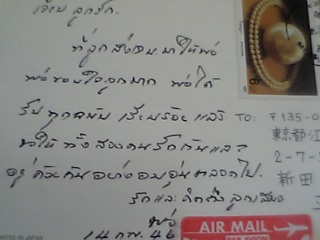 เจี๊ยบ ลูกรัก.
ที่ลูกส่ง มาให้พ่อ
พ่อขอบใจลูกมาก พ่อได้
รับทุกฉบับ เรียบร้อย แล้ว
ขอให้ ทั้งสองคนรักกันและ
อยู่ด้วยกัน อย่างอบอุ่นตลอดไป.
รักและคิดถึงลูกเสมอ
พ่อ
14 กพ. 46
TO: 〒135-0
東京都江
2-7-
新田
AIR MAIL
PAR AVION
PRINTED IN JAPAN